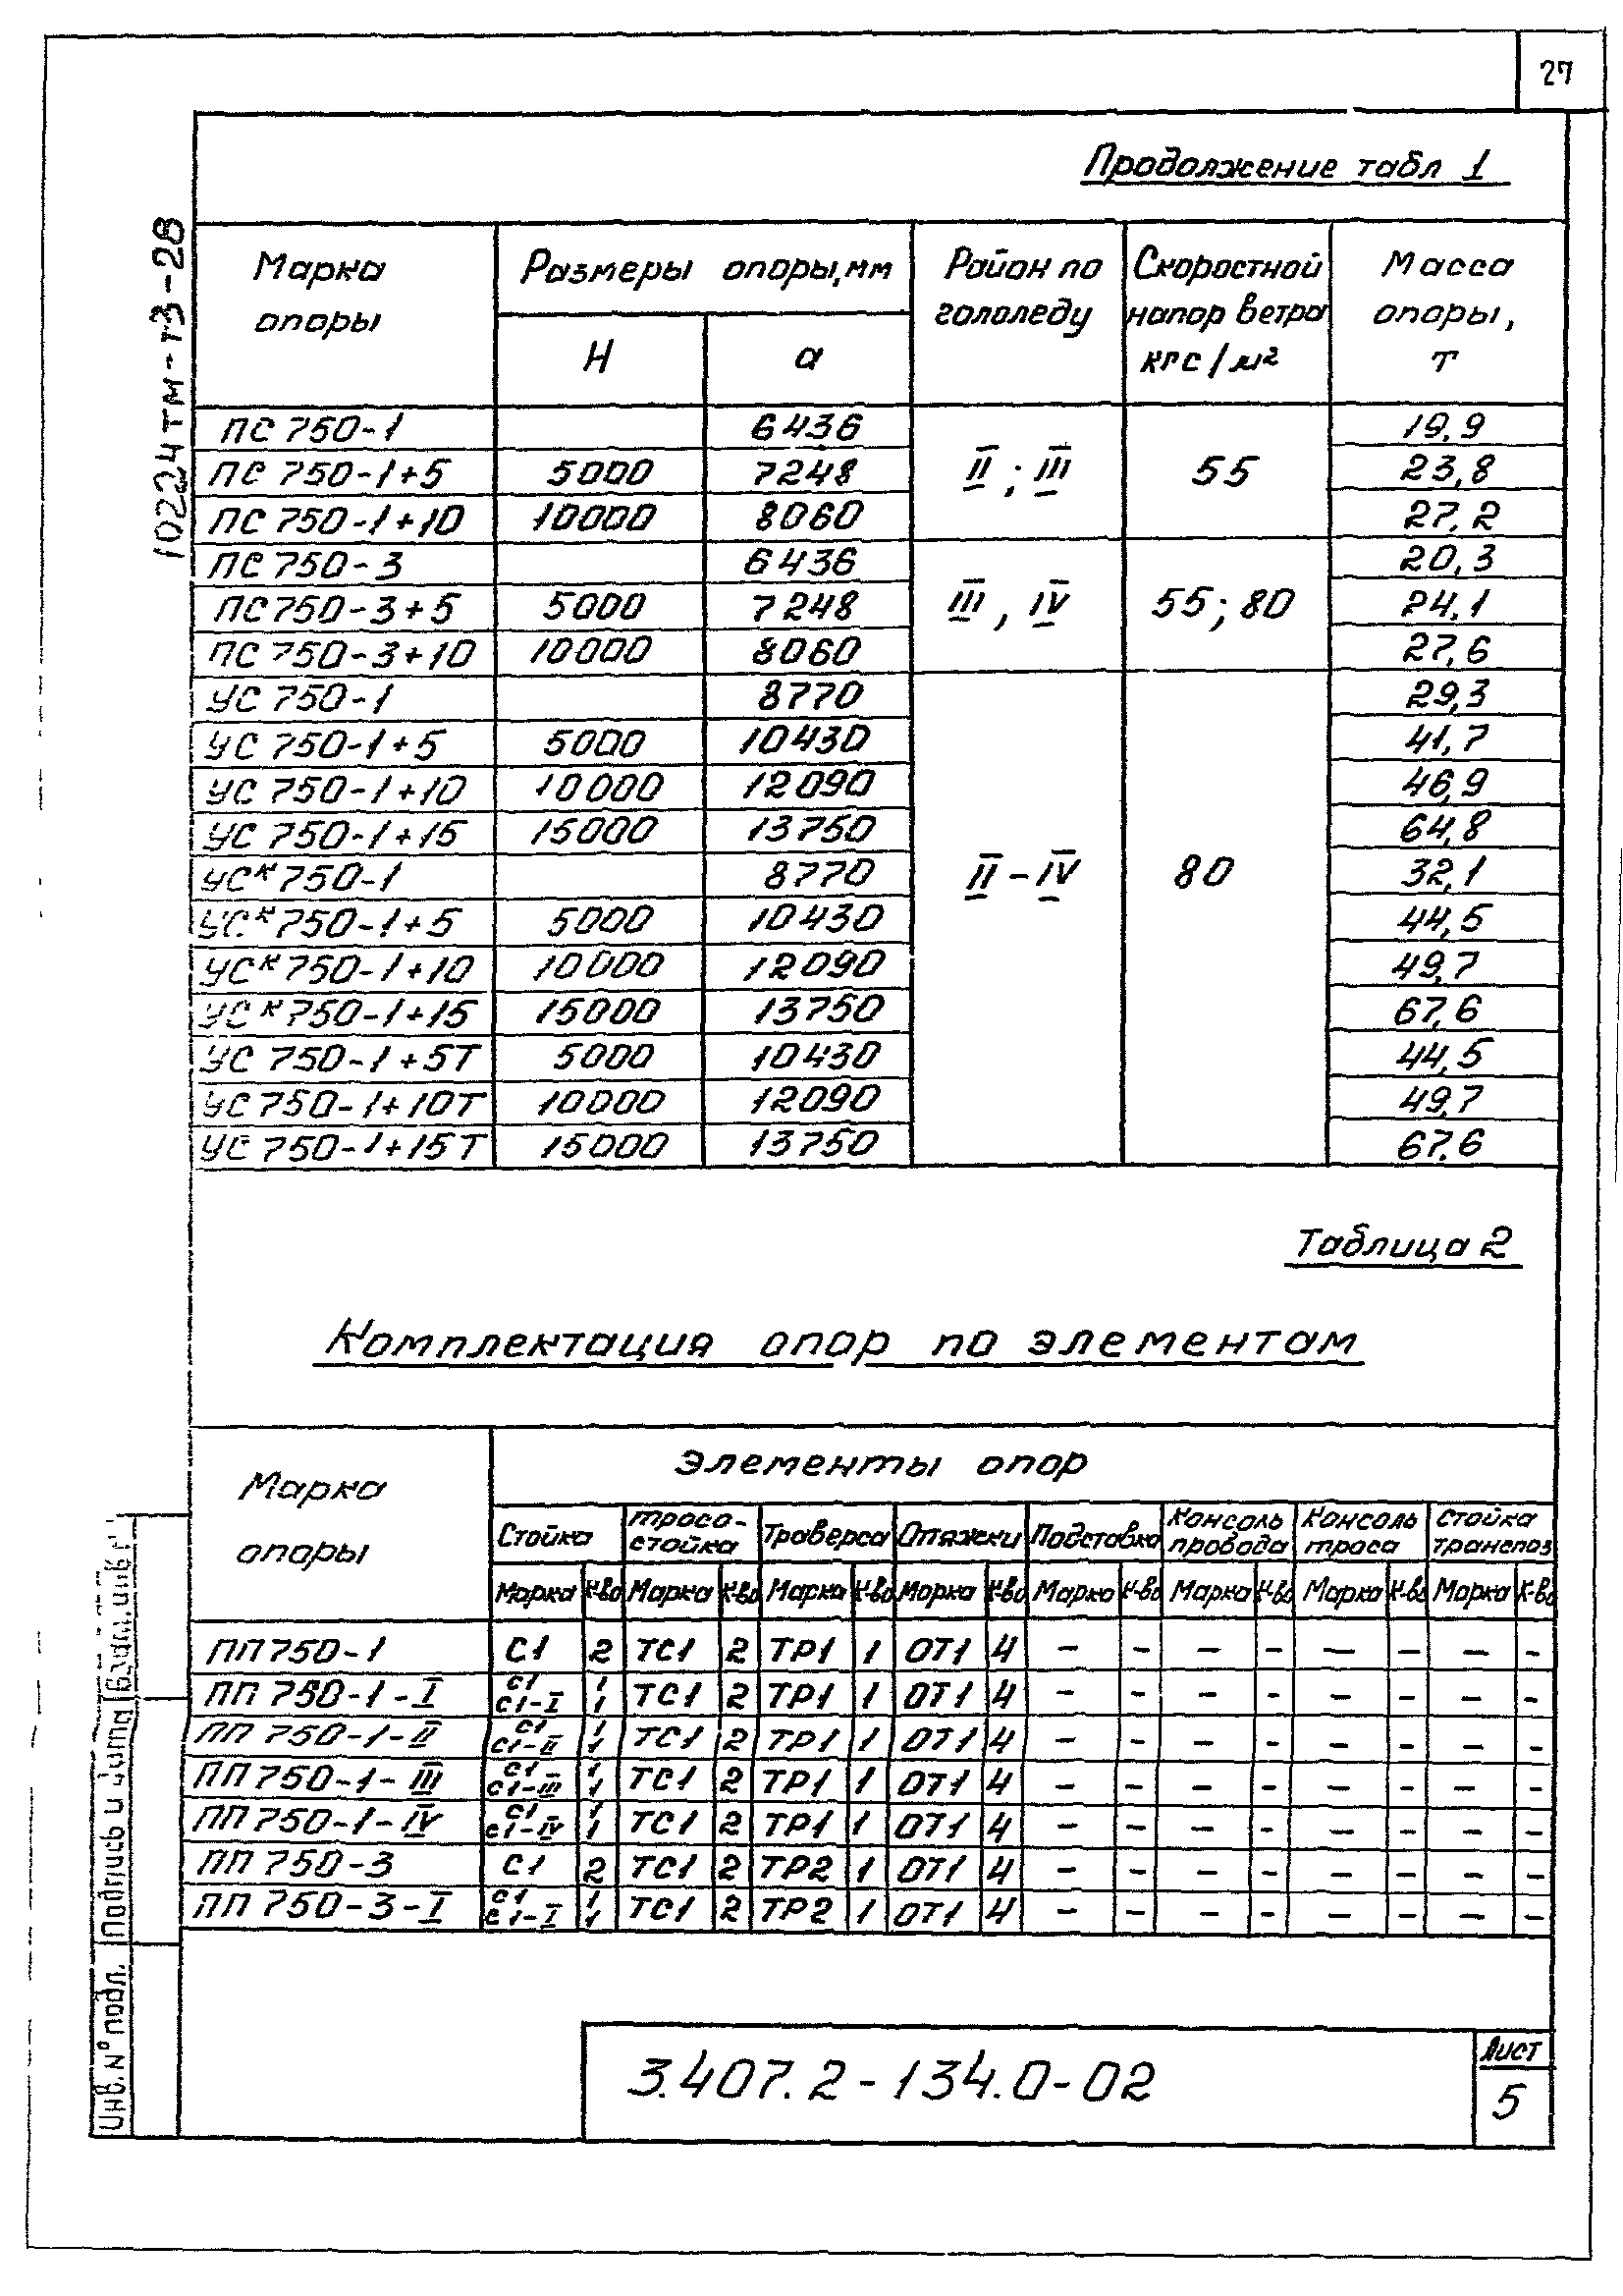 27
Продолжение табл 1
10224тм-т3-28
Марка опоры | Размеры опоры, мм | Район по гололеду | Скоростной напор ветра кгс/м² | Масса опоры, т
Н | а
ПС 750-1 | | 6436 | II; III | 55 | 19,9
ПС 750-1+5 | 5000 | 7248 | 23,8
ПС 750-1+10 | 10000 | 8060 | 27,2
ПС 750-3 | | 6436 | III, IV | 55; 80 | 20,3
ПС 750-3+5 | 5000 | 7248 | 24,1
ПС 750-3+10 | 10000 | 8060 | 27,6
УС 750-1 | | 8770 | II-IV | 80 | 29,3
УС 750-1+5 | 5000 | 10430 | 41,7
УС 750-1+10 | 10000 | 12090 | 46,9
УС 750-1+15 | 15000 | 13750 | 64,8
УСК 750-1 | | 8770 | 32,1
УСК 750-1+5 | 5000 | 10430 | 44,5
УСК 750-1+10 | 10000 | 12090 | 49,7
УСК 750-1+15 | 15000 | 13750 | 67,6
УС 750-1+5Т | 5000 | 10430 | 44,5
УС 750-1+10Т | 10000 | 12090 | 49,7
УС 750-1+15Т | 15000 | 13750 | 67.6
Таблица 2
Комплектация опор по элементам
Марка опоры | Элементы опор
Стойка | Тросо-стойка | Траверса | Оттяжки | Подставка | Консоль провода | Консоль троса | Стойка транспоз
Марка | К-во | Марка | К-во | Марка | К-во | Марка | К-во | Марка | К-во | Марка | К-во | Марка | К-во | Марка | К-во
ПП750-1 | С1 | 2 | ТС1 | 2 | ТР1 | 1 | ОТ1 | 4 | - | - | - | - | - | - | - | -
ПП 750-1-I | С1 С1-I | 1 1 | ТС1 | 2 | ТР1 | 1 | ОТ1 | 4 | - | - | - | - | - | - | - | -
ПП 750-1-II | С1 С1-II | 1 1 | ТС1 | 2 | ТР1 | 1 | ОТ1 | 4 | - | - | - | - | - | - | - | -
ПП 750-1-III | С1 С1-III | 1 1 | ТС1 | 2 | ТР1 | 1 | ОТ1 | 4 | - | - | - | - | - | - | - | -
ПП 750-1-IV | С1 С1-IV | 1 1 | ТС1 | 2 | ТР1 | 1 | ОТ1 | 4 | - | - | - | - | - | - | - | -
ПП 750-3 | С1 | 2 | ТС1 | 2 | ТР2 | 1 | ОТ1 | 4 | - | - | - | - | - | - | - | -
ПП 750-3-I | С1 С1-I | 1 1 | ТС1 | 2 | ТР2 | 1 | ОТ1 | 4 | - | - | - | - | - | - | - | -
Инв. N° подл.
Подпись и дата
Взам. инв. N°
3.407.2-134.0-02
Лист
5